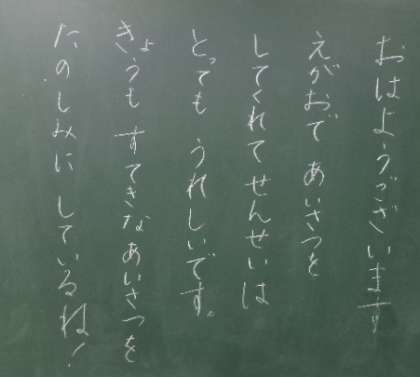 おはようございます
えがおで あいさつを
してくれて せんせいは
とっても うれしいです。
きょうも すてきな あいさつを
たのしみに しているね!